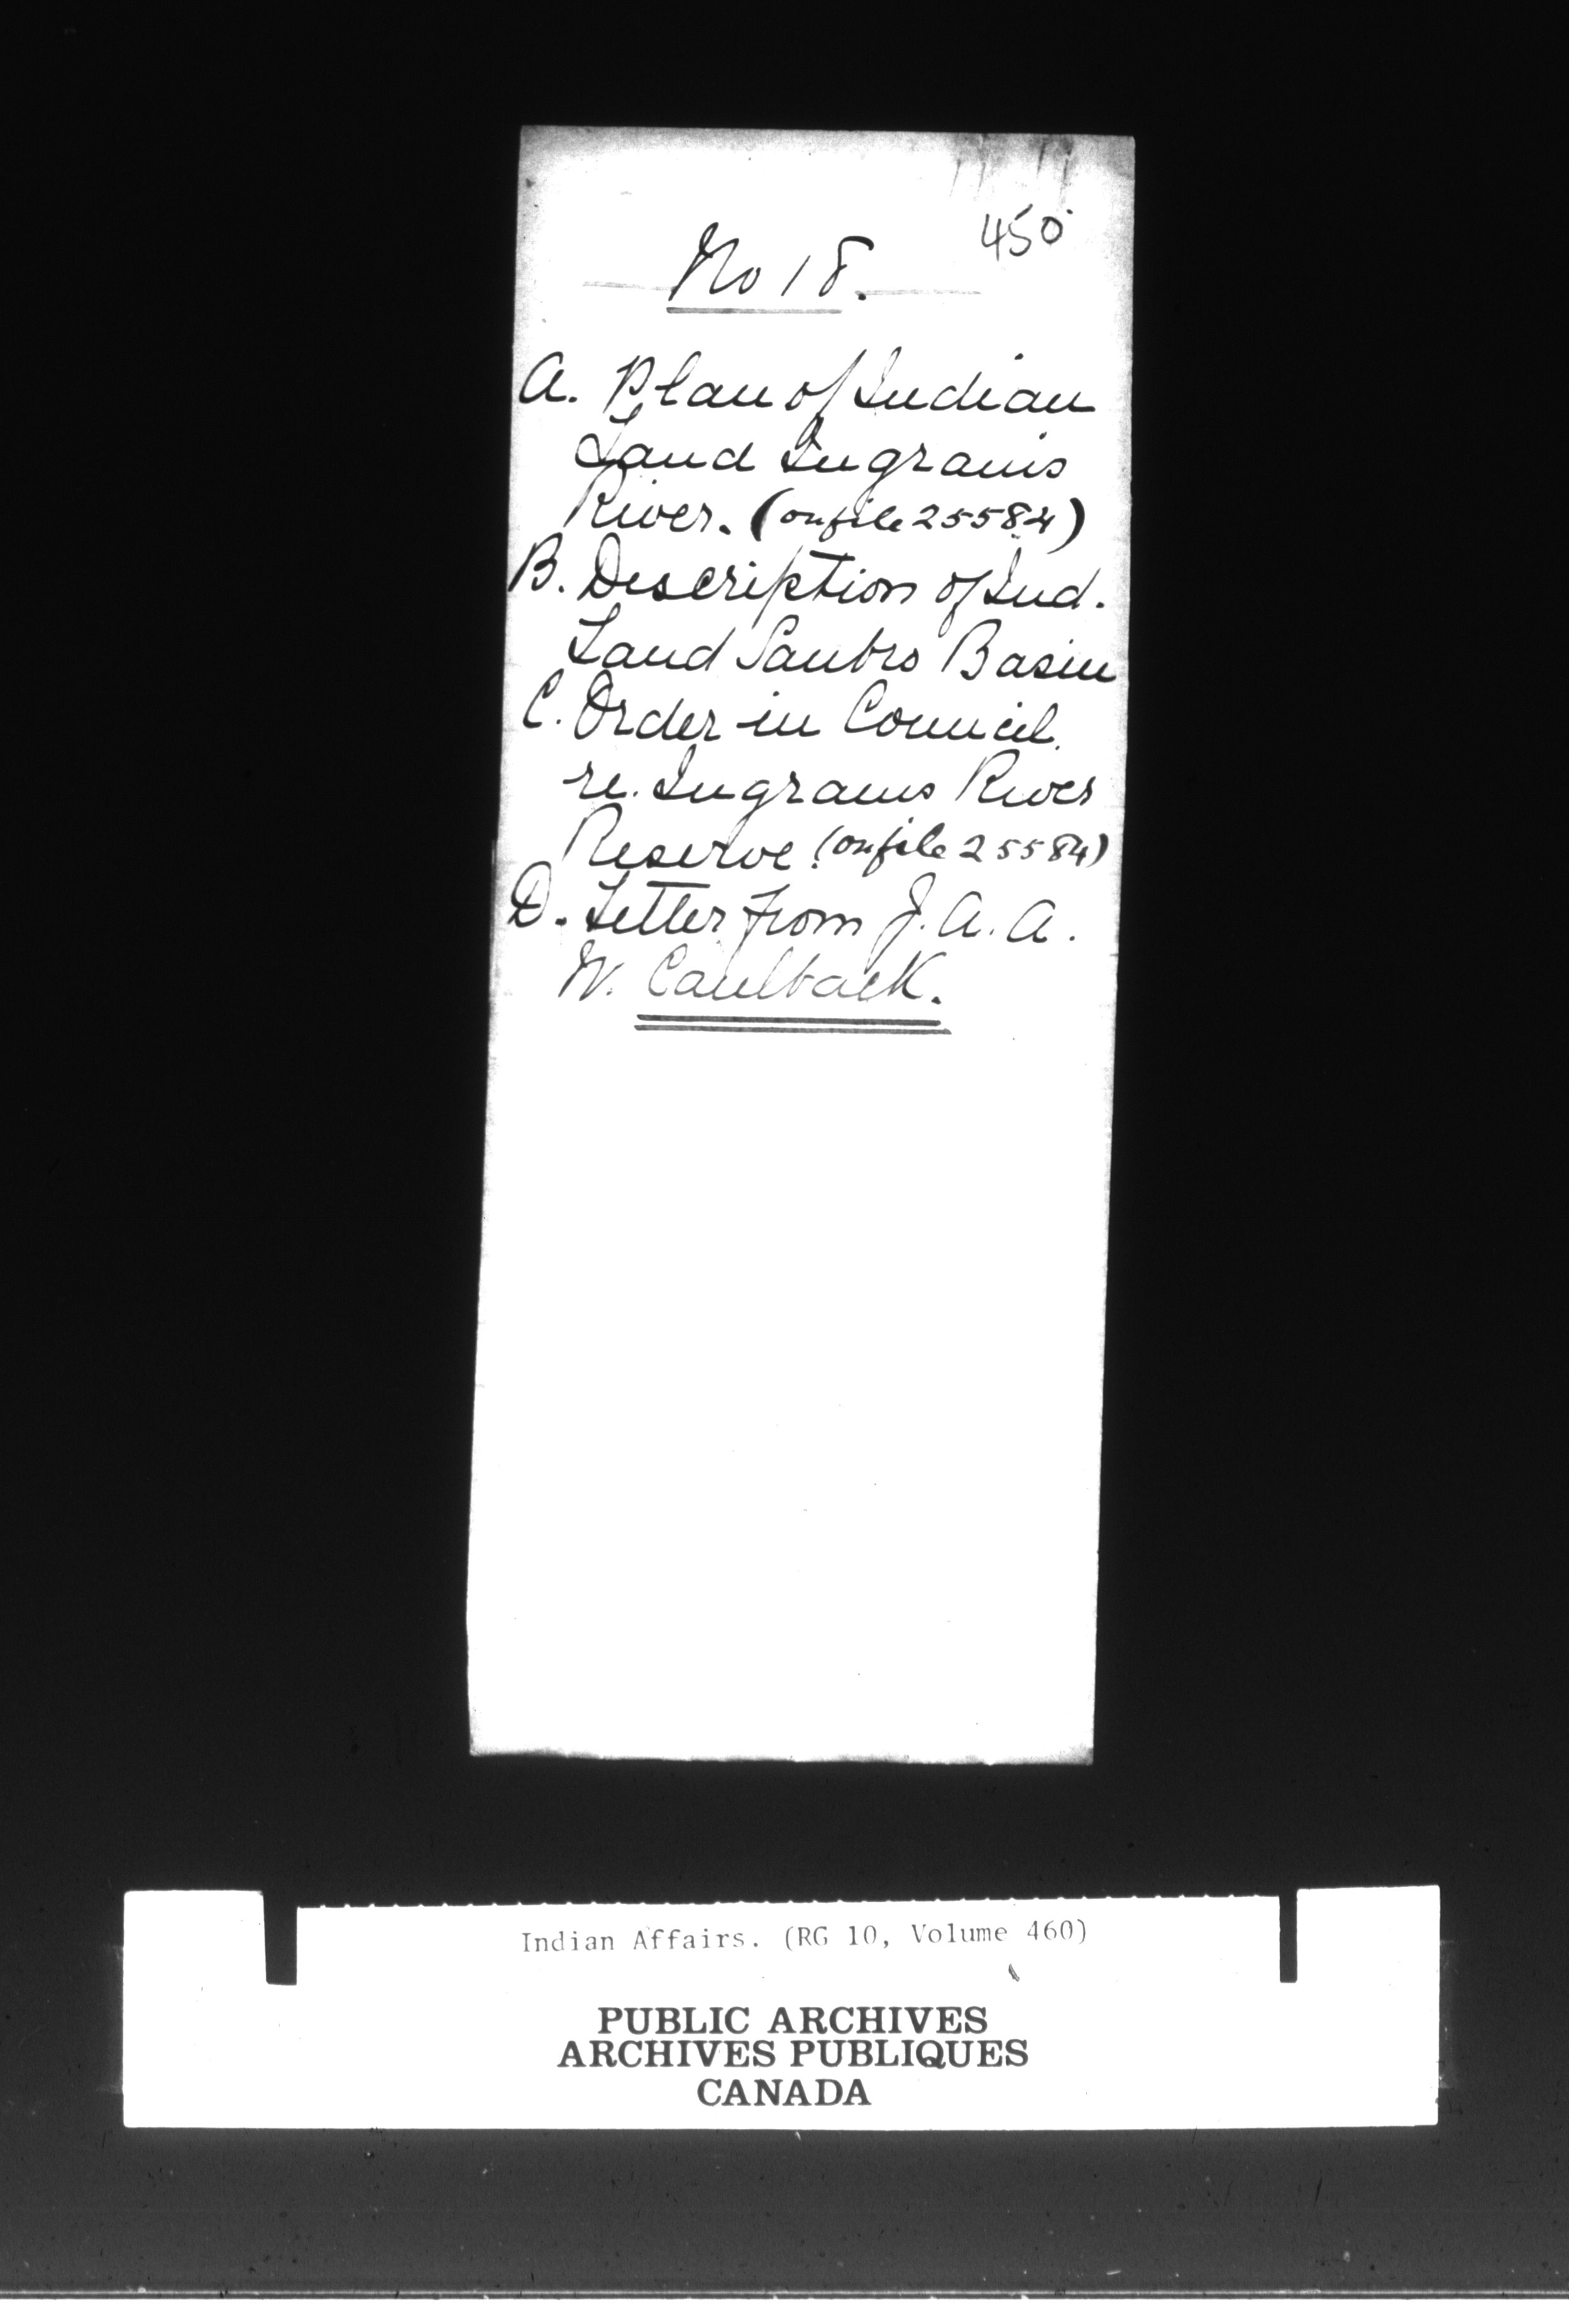 450
No 18.
A. Plan of Indian
Land Ingrams
River. (on file 25584)
B. Description of Ind.
Land Sambro Basin
C. Order in Council
re. Ingrams River
Reserve (on file 25584)
D. Letter from J. A. A.
W. Caulback.
Indian Affairs. (RG 10, Volume 460)
PUBLIC ARCHIVES
ARCHIVES PUBLIQUES
CANADA